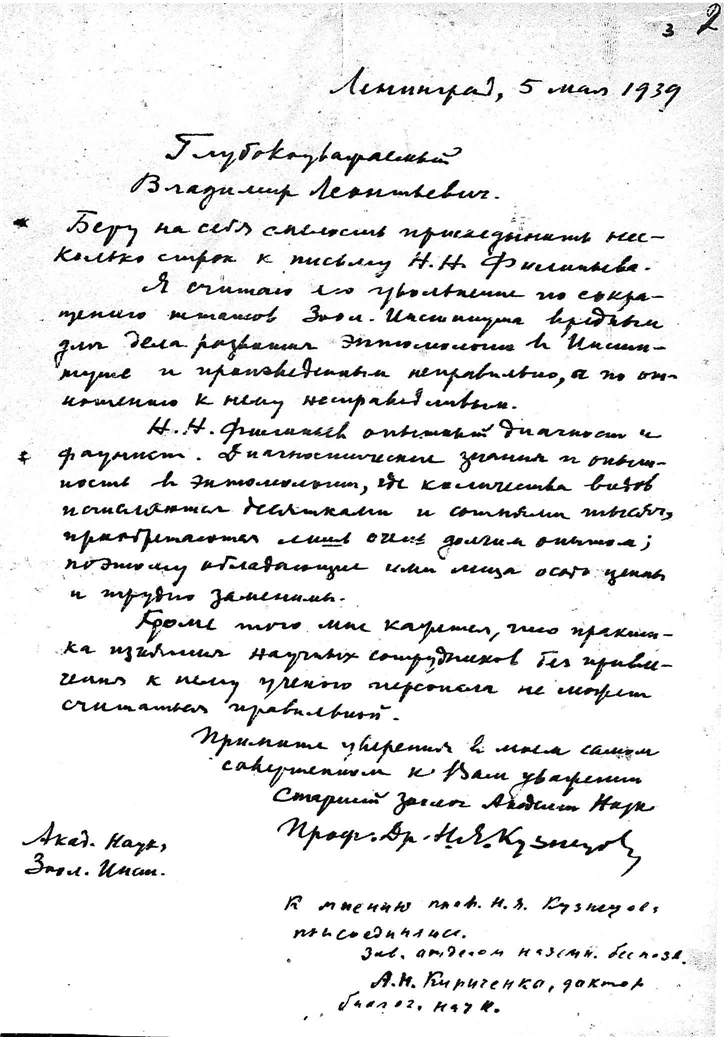 3 2
Ленинград, 5 мая 1939
Глубокоуважаемый
Владимир Леонтьевич.
Беру на себя смелость присоединить нес-
колько строк к письму Н.Н. Филипьева.
Я считаю его увольнение по сокра-
щению штатов Зоол. Института вредным
для дела развития энтомологии в Инсти-
туте и произведенным неправильно, а по от-
ношению к нему несправедливым.
Н.Н. Филипьев опытный диагност и
фаунист. Диагностические знания и опыт-
ность в энтомологии, где количества видов
исчисляются десятками и сотнями тысяч,
приобретаются лишь очень долгим опытом;
поэтому обладающие ими лица особо ценны
и трудно заменимы.
Кроме того мне кажется, что практи-
ка изъятия научных сотрудников без привле-
чения к нему ученого персонала не может
считаться правильной.
Примите уверения в моем самом
совершенном к Вам уважении
Старший зоолог Академии Наук
Проф. Др. Н.Я. Кузнецов
Акад. Наук,
Зоол. Инст.
К мнению проф. Н.Я. Кузнецова
присоединяюсь.
Зав. отделом наземн. беспозв.
А.Н. Кириченко, доктор
биолог. наук.